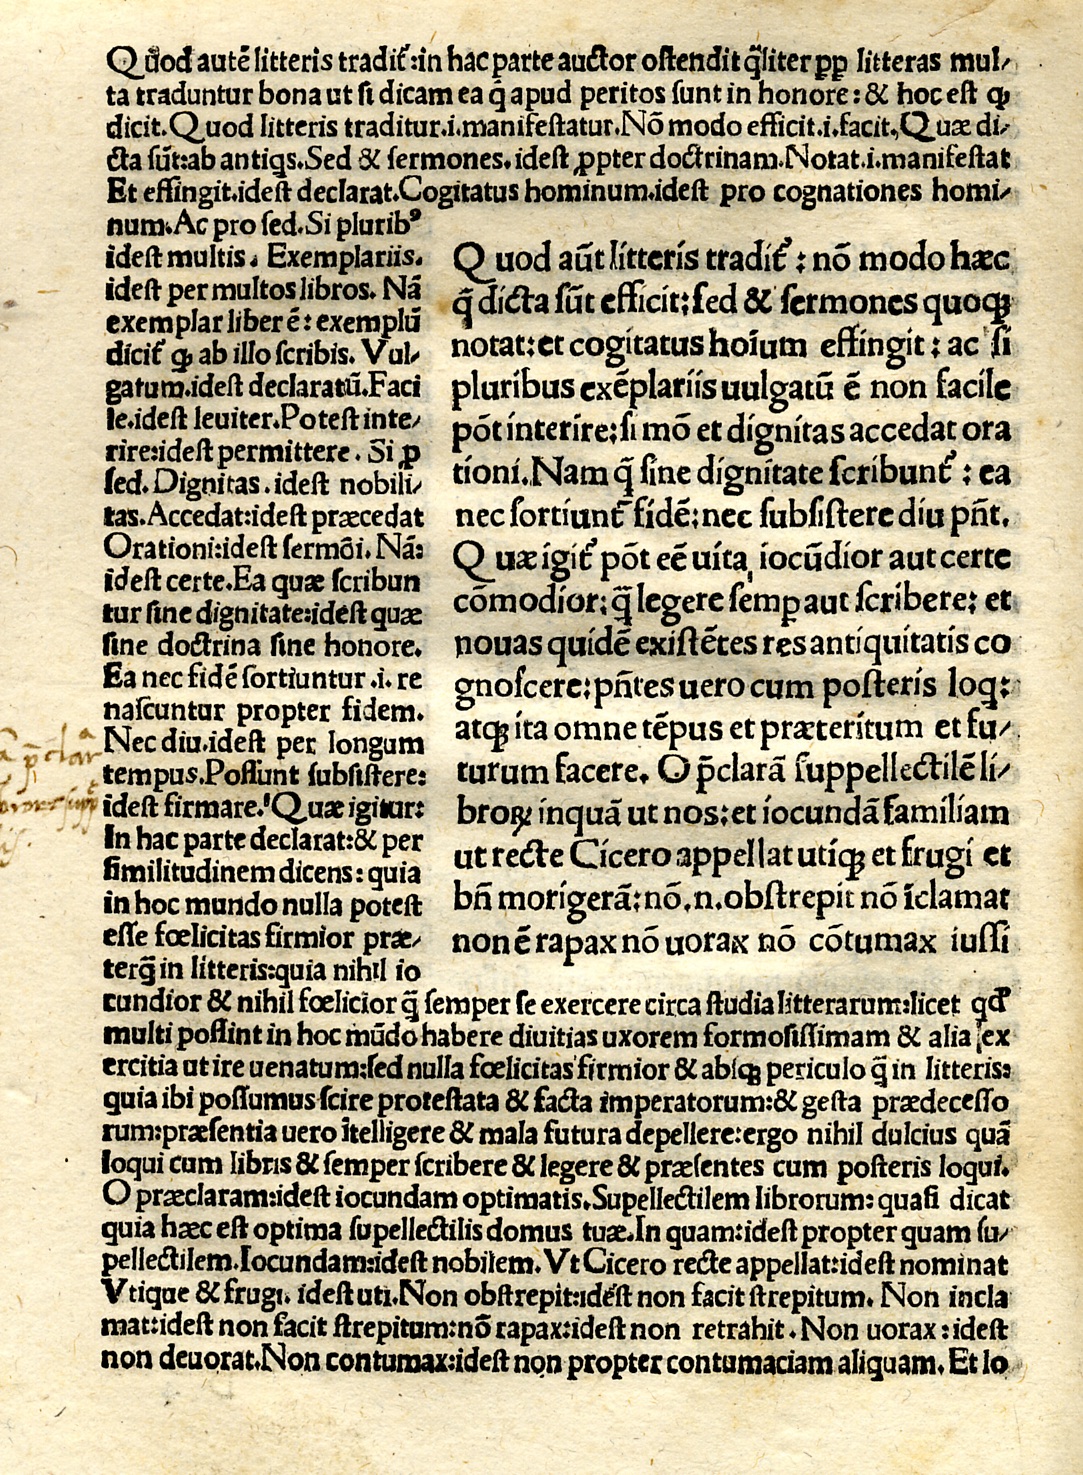 Quod autē litteris tradit᷑:in hac parte auctor ostendit q̄liter ꝓpꝑ litteras mul/
ta traduntur bona ut si dicam ea q̄ apud peritos sunt in honore: & hoc est ꝙ
dicit.Quod litteris traditur.i.manifestatur.Nō modo efficit.i.facit.Quæ di/
cta sūt:ab antiqs.Sed & sermones.idest ꝓpter doctrinam.Notat.i.manifestat
Et effingit.idest declarat.Cogitatus hominum.idest pro cognationes homi/
num.Ac pro sed.Si pluribꝰ
idest multis. Exemplariis.
idest per multos libros. Nā
exemplar liber ē: exemplū
dicit᷑ ꝙ ab illo scribis. Vul/
gatum.idest declaratū.Faci
le.idest leuiter.Potest inte/
rire:idest permittere. Si ꝓ
sed.Dignitas.idest nobili/
tas.Accedat:idest præcedat
Orationi:idest sermōi. Nā:
idest certe.Ea quæ scribun
tur sine dignitate:idest quæ
sine doctrina sine honore.
Ea nec fidē sortiuntur .i. re
nascuntur propter fidem.
Nec diu.idest per longum
tempus.Possunt subsistere:
idest firmare.Quæ igitur:
In hac parte declarat:& per
similitudinem dicens: quia
in hoc mundo nulla potest
esse fœlicitas firmior præ/
terq̄ in litteris:quia nihil io
Quod aūt litteris tradit᷑ : nō modo hæc
q̄ dicta sūt efficit:sed & sermones quoqꝫ
notat:et cogitatus hoīum effingit : ac si
pluribus exēplariis uulgatū ē non facile
pōt interire:si mō et dignitas accedat ora
tioni.Nam q̄ sine dignitate scribunt᷑ : ea
nec sortiunt᷑ fidē:nec subsistere diu pñt.
Quæ igit᷑ pōt eē uita iocūdior aut certe
cōmodior:q̄ legere semꝑ aut scribere: et
nouas quidē existētes res antiquitatis co
gnoscere:pñtes uero cum posteris loq:
atqꝫ ita omne tēpus et præteritum et fu/
turum facere. O p̄clarā suppellectilē li/
broꝝ inquā ut nos:et iocundā familiam
ut recte Cicero appellat utiqꝫ et frugi et
bñ morigerā:nō.n.obstrepit nō īclamat
non ē rapax nō uorax nō cōtumax iussi
cundior & nihil fœlicior q̄ semper se exercere circa studia litterarum:licet qd̛
multi possint in hoc mūdo habere diuitias uxorem formosissimam & alia ex
ercitia ut ire uenatum:sed nulla fœlicitas firmior & absqꝫ periculo q̄ in litteris:
quia ibi possumus scire protestata & facta imperatorum:& gesta prædecesso
rum:præsentia uero ītelligere & mala futura depellere:ergo nihil dulcius quā
loqui cum libris & semper scribere & legere & præsentes cum posteris loqui.
O præclaram:idest iocundam optimatis.Supellectilem librorum: quasi dicat
quia hæc est optima supellectilis domus tuæ.In quam:idest propter quam su/
pellectilem.Iocundam:idest nobilem. Vt Cicero recte appellat:idest nominat
Vtique & frugi. idest uti.Non obstrepit:idest non facit strepitum. Non incla
mat:idest non facit strepitum:nō rapax:idest non retrahit.Non uorax:idest
non deuorat.Non contumax:idest non propter contumaciam aliquam. Et lo